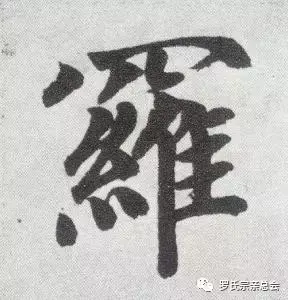 羅
罗氏宗亲总会